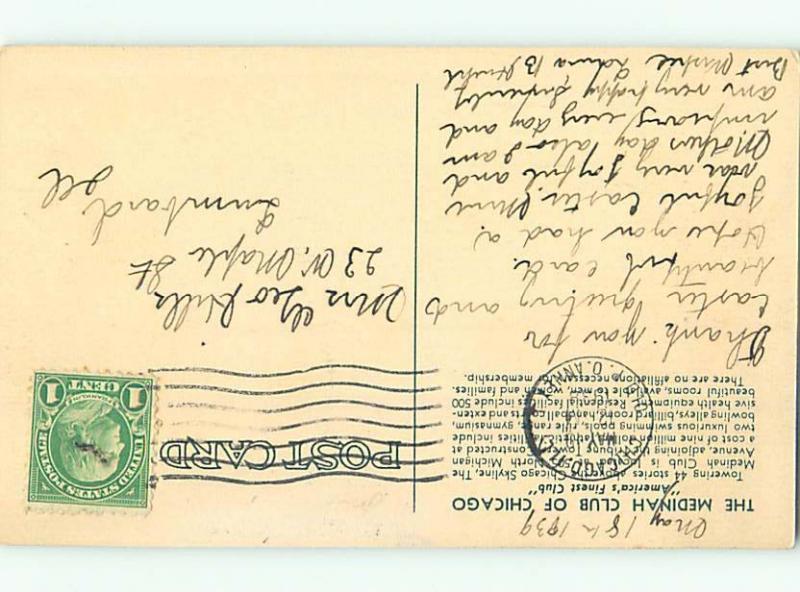 May 18th 1939
THE MEDINAH CLUB OF CHICAGO
"America's Finest Club"
Towering 44 stories above the Chicago Skyline, The
Medinah Club is located at 505 North Michigan
Avenue, adjoining the Tribune Tower. Constructed at
a cost of nine million dollars. Its facilities include
two luxurious swimming pools, rifle range, gymnasium,
bowling lanes, billiard rooms, handball courts and exten-
sive health equipment. Residential facilities include 500
beautiful rooms, available to men, women and families.
There are no affiliations necessary for membership.
Thank you for
Easter Greeting and
beautiful card.
Hope you had a
joyful Easter. Mine
was very joyful and
Mothers day also I am
improving every day and
am very happy
Best Wishes Edna B
POST CARD
CHICAGO, ILL.
MAY
ANNEX
UNITED STATES POSTAGE
FRANKLIN
1 CENT 1
Mrs Geo Hills
23 W. Maple St
Lumbard Ill